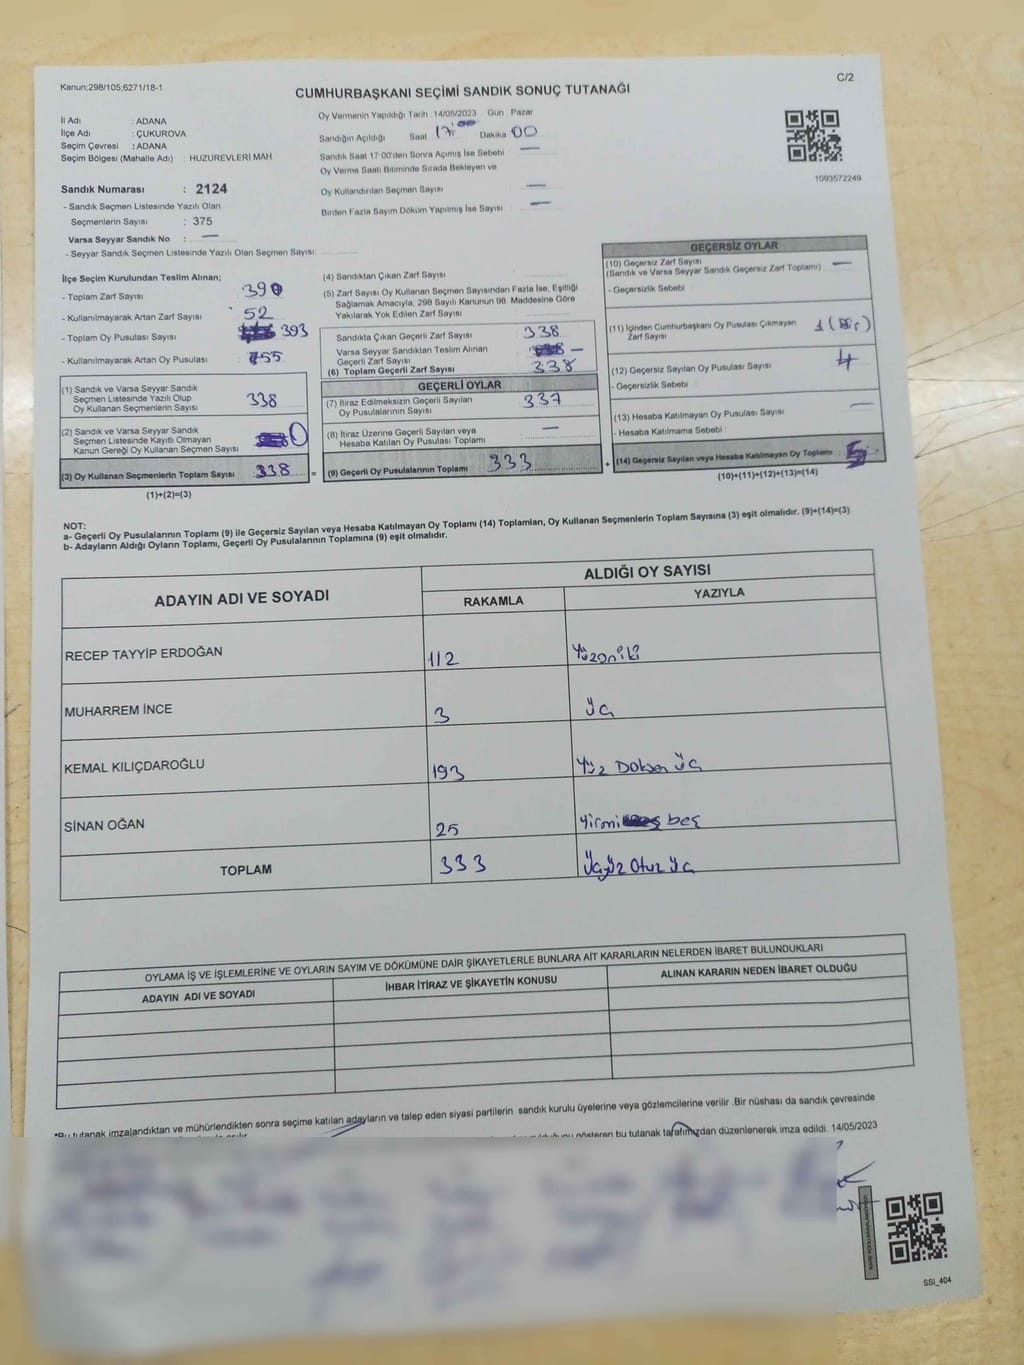 Kanun;298/105;6271/18-1
C/2
CUMHURBAŞKANI SEÇİMİ SANDIK SONUÇ TUTANAĞI
İl Adı : ADANA
İlçe Adı : ÇUKUROVA
Seçim Çevresi : ADANA
Seçim Bölgesi (Mahalle Adı) : HUZUREVLERİ MAH
Sandık Numarası : 2124
- Sandık Seçmen Listesinde Yazılı Olan
Seçmenlerin Sayısı : 375
Varsa Seyyar Sandık No : —
- Seyyar Sandık Seçmen Listesinde Yazılı Olan Seçmen Sayısı
Oy Vermenin Yapıldığı Tarih 14/05/2023 Gün Pazar
Sandığın Açıldığı Saat 17:00 Dakika 00
Sandık Saat 17:00'den Sonra Açımış İse Sebebi —
Oy Verme Saati Bitiminde Sırada Bekleyen ve
Oy Kullandırılan Seçmen Sayısı —
Birden Fazla Sayım Döküm Yapılmış İse Sayısı —
1093572249
İlçe Seçim Kurulundan Teslim Alınan;
- Toplam Zarf Sayısı 390
- Kullanılmayarak Artan Zarf Sayısı 52
- Toplam Oy Pusulası Sayısı 393
- Kullanılmayarak Artan Oy Pusulası 55
(1) Sandık ve Varsa Seyyar Sandık
Seçmen Listesinde Yazılı Olup
Oy Kullanan Seçmenlerin Sayısı 338
(2) Sandık ve Varsa Seyyar Sandık
Seçmen Listesinde Kayıtlı Olmayan
Kanun Gereği Oy Kullanan Seçmen Sayısı 0
(3) Oy Kullanan Seçmenlerin Toplam Sayısı 338 =
(1)+(2)=(3)
(4) Sandıktan Çıkan Zarf Sayısı
(5) Zarf Sayısı Oy Kullanan Seçmen Sayısından Fazla İse, Eşitliği
Sağlamak Amacıyla, 298 Sayılı Kanunun 98. Maddesine Göre
Yakılarak Yok Edilen Zarf Sayısı
Sandıkta Çıkan Geçerli Zarf Sayısı 338
Varsa Seyyar Sandıktan Teslim Alınan
Geçerli Zarf Sayısı —
(6) Toplam Geçerli Zarf Sayısı 338
GEÇERLİ OYLAR
(7) İtiraz Edilmeksizin Geçerli Sayılan
Oy Pusulalarının Sayısı 337
(8) İtiraz Üzerine Geçerli Sayılan veya
Hesaba Katılan Oy Pusulası Toplamı —
(9) Geçerli Oy Pusulalarının Toplamı 333 +
GEÇERSİZ OYLAR
(10) Geçersiz Zarf Sayısı —
(Sandık ve Varsa Seyyar Sandık Geçersiz Zarf Toplamı)
- Geçersizlik Sebebi
(11) İçinden Cumhurbaşkanı Oy Pusulası Çıkmayan
Zarf Sayısı 1
(12) Geçersiz Sayılan Oy Pusulası Sayısı 4
- Geçersizlik Sebebi
(13) Hesaba Katılmayan Oy Pusulası Sayısı —
- Hesaba Katılmama Sebebi
(14) Geçersiz Sayılan veya Hesaba Katılmayan Oy Toplamı : 5
(10)+(11)+(12)+(13)=(14)
NOT:
a- Geçerli Oy Pusulalarının Toplamı (9) ile Geçersiz Sayılan veya Hesaba Katılmayan Oy Toplamı (14) Toplamları, Oy Kullanan Seçmenlerin Toplam Sayısına (3) eşit olmalıdır. (9)+(14)=(3)
b- Adayların Aldığı Oyların Toplamı, Geçerli Oy Pusulalarının Toplamına (9) eşit olmalıdır.
ADAYIN ADI VE SOYADI ALDIĞI OY SAYISI
RAKAMLA YAZIYLA
RECEP TAYYİP ERDOĞAN 112 Yüzoniki
MUHARREM İNCE 3 Üç
KEMAL KILIÇDAROĞLU 193 Yüz Doksan üç
SİNAN OĞAN 25 Yirmi beş
TOPLAM 333 Üçyüz Otuz üç
OYLAMA İŞ VE İŞLEMLERİNE VE OYLARIN SAYIM VE DÖKÜMÜNE DAİR ŞİKAYETLERLE BUNLARA AİT KARARLARIN NELERDEN İBARET BULUNDUKLARI
ADAYIN ADI VE SOYADI İHBAR İTİRAZ VE ŞİKAYETİN KONUSU ALINAN KARARIN NEDEN İBARET OLDUĞU
*Bu tutanak imzalandıktan ve mühürlendikten sonra seçime katılan adayların ve talep eden siyasi partilerin sandık kurulu üyelerine veya gözlemcilerine verilir .Bir nüshası da sandık çevresinde
gösteren bu tutanak tarafımızdan düzenlenerek imza edildi. 14/05/2023
SSI_404